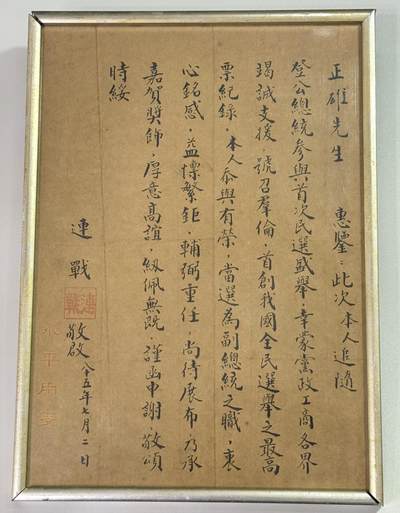 正雄先生　惠鑒：此次本人追隨
登公總統參與首次民選盛舉，幸蒙黨政工商各界
竭誠支援，號召羣倫，首創我國全民選舉之最高
票紀錄，本人忝與有榮，當選為副總統之職，衷
心銘感，益懍繁鉅，輔弼重任，尚待展布，乃承
嘉賀獎飾，厚意高誼，紉佩無既，謹函申謝，敬頌
時綏
連戰　敬啟　八十五年七月二日